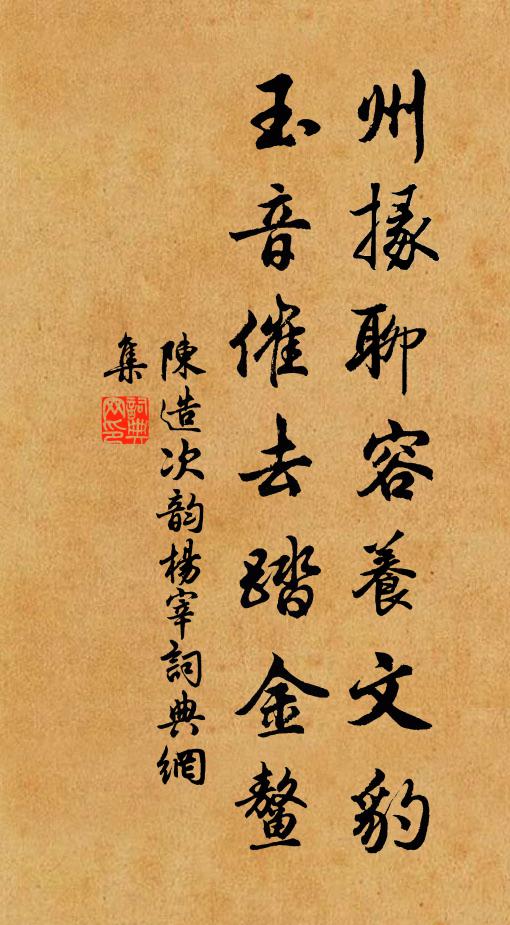 州掾聊容養文豹
玉音催去踏金鼇
陳造次韵楊宰詞典網
集
詞典网印